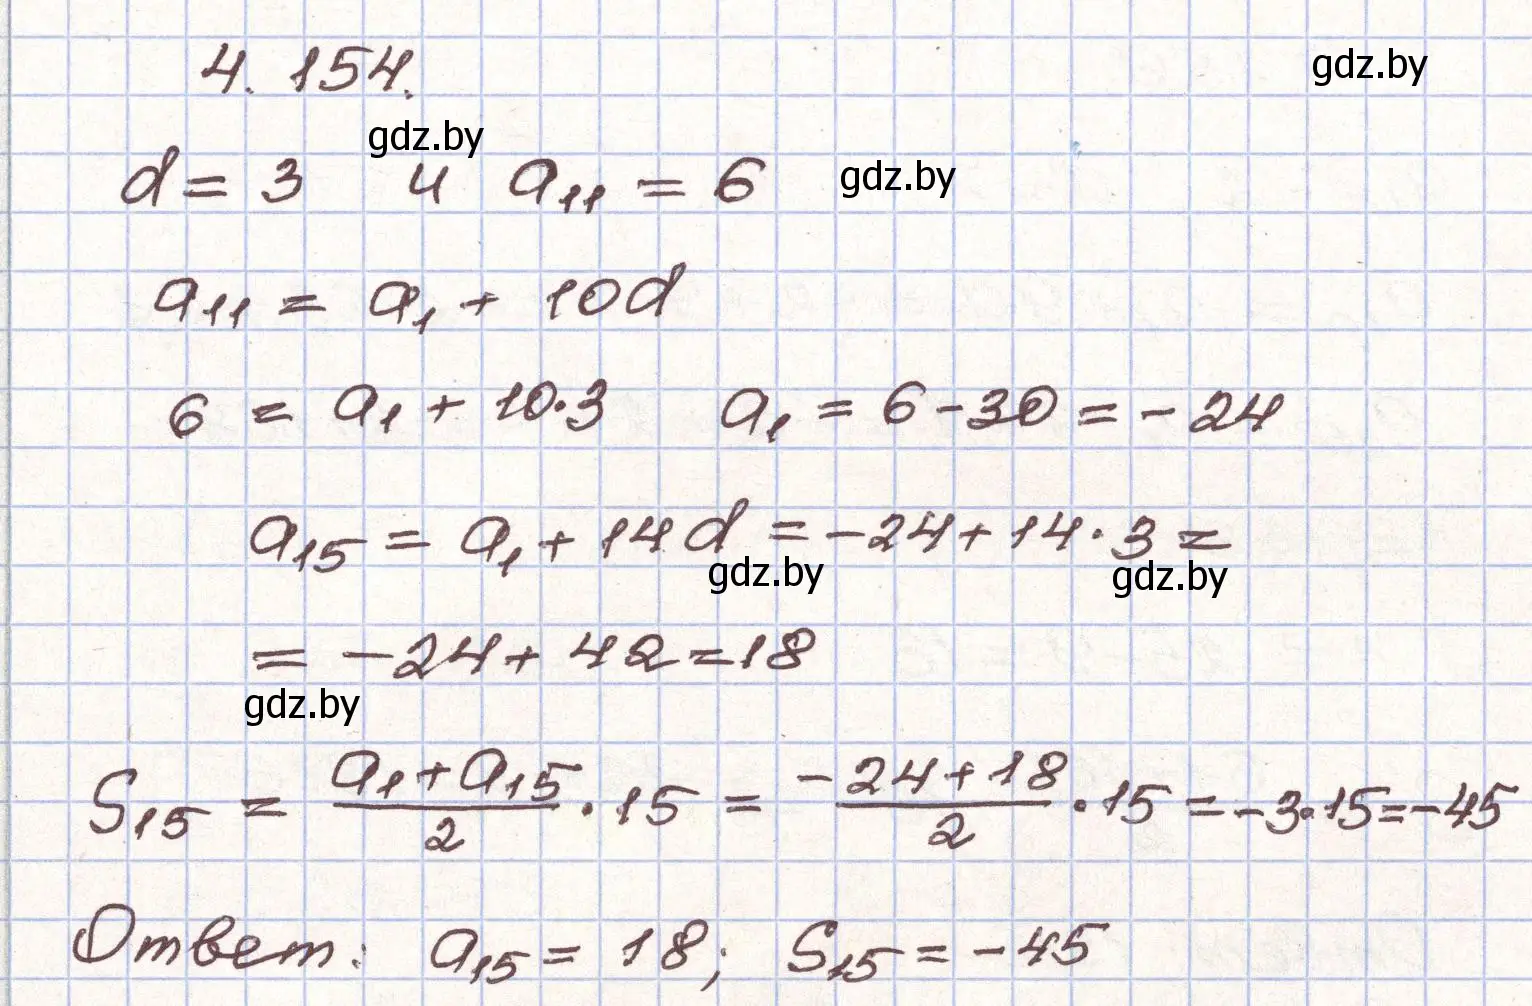 4.154.
gdz.by
gdz.by
d = 3 и a₁₁ = 6
gdz.by
a₁₁ = a₁ + 10d
6 = a₁ + 10·3 a₁ = 6 - 30 = - 24
a₁₅ = a₁ + 14d = - 24 + 14 · 3 =
gdz.by
gdz.by
= - 24 + 42 = 18
gdz.by
S₁₅ = (a₁ + a₁₅)/2 · 15 = (- 24 + 18)/2 · 15 = - 3 · 15 = - 45
Ответ: a₁₅ = 18; S₁₅ = - 45